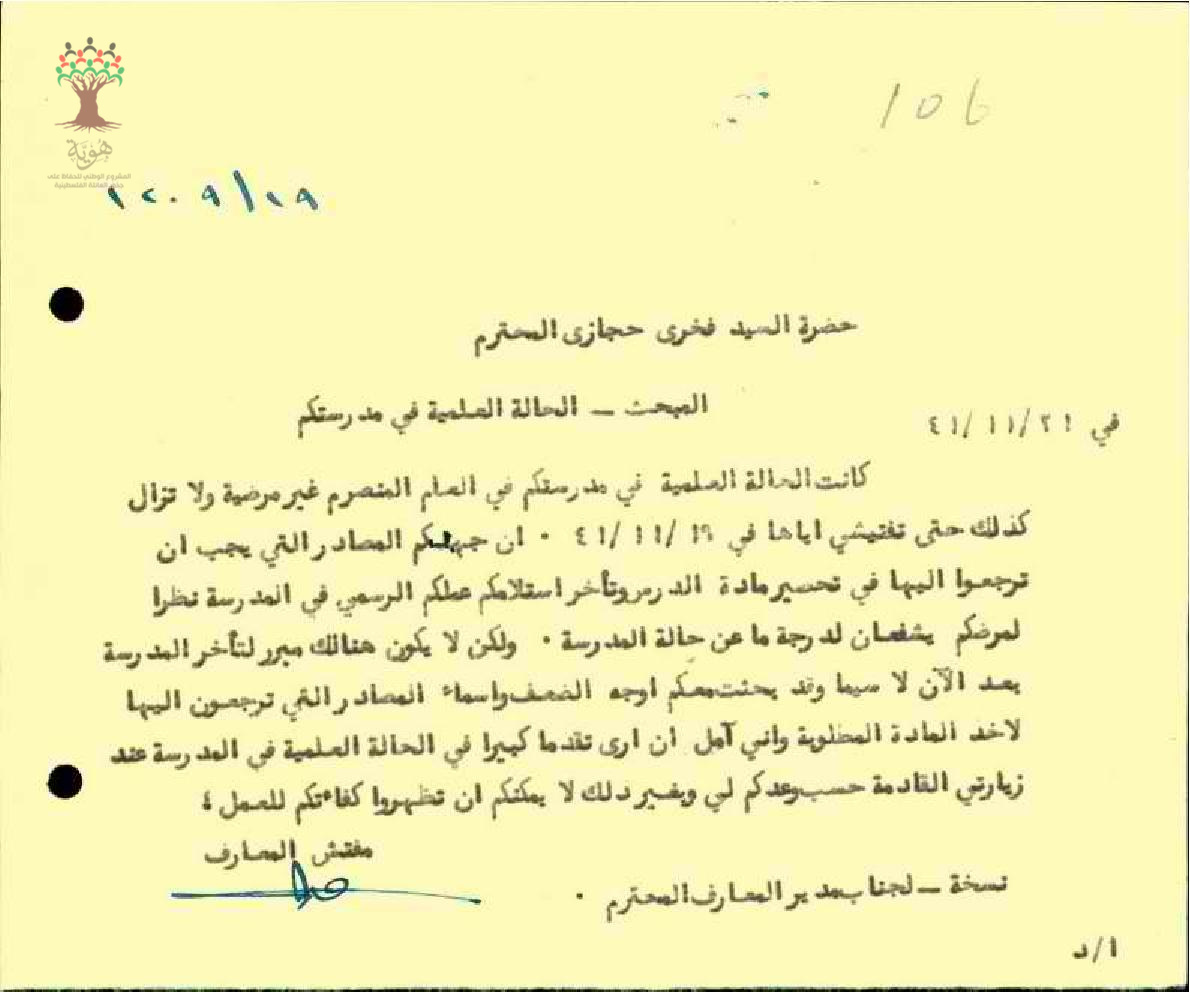 هُوِيَّة
المشروع الوطني للحفاظ على
جذور العائلة الفلسطينية
106
١٢٠٩/٢٩
حضرة السيد فخرى حجازى المحترم
المبحث ــ الحالة العلمية في مدرستكم
في ٢١/١١/٤١
كانت الحالة العلمية في مدرستكم في العام المنصرم غير مرضية ولا تزال
كذلك حتى تفتيشي اياها في ١٩/١١/٤١ ٠ ان جهلكم المصادر التي يجب ان
ترجعوا اليها في تحسير مادة الدرس وتأخر استلامكم عملكم الرسمي في المدرسة نظرا
لمرضكم يشفعان لدرجة ما عن حالة المدرسة ٠ ولكن لا يكون هنالك مبرر لتأخر المدرسة
بعد الآن لا سيما وقد بحثت معكم اوجه الضعف واسماء المصادر التي ترجعون اليها
لاخد المادة المطلوبة واني آمل ان ارى تقدما كبيرا في الحالة العلمية في المدرسة عند
زيارتي القادمة حسب وعدكم لي وبغير دلك لا يمكنكم ان تظهروا كفاءتكم للعمل ؛
مفتش المعارف
نسخة ــ لجناب مدير المعارف المحترم ٠
ا/د